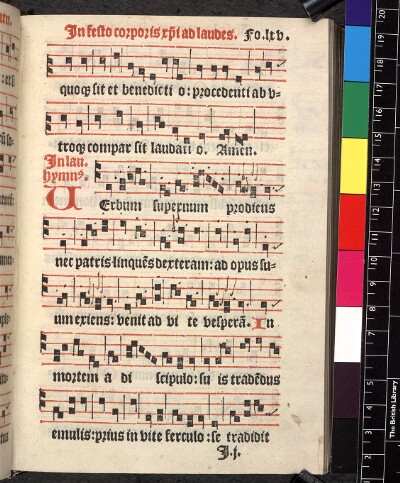 In festo corporis xp̄i ad laudes. Fo. lxv.
quoqȝ sit et benedicti o: procedenti ab v-
troqȝ compar sit laudati o. Amen.
In lau.
hymnꝰ.
VErbum supernum prodiens
nec patris linquēs dexteram: ad opus su-
um exiens: venit ad vi te vesperā. In
mortem a di scipulo: su is tradēdus
emulis: prius in vite ferculo: se tradidit
I.j.
The British Library
20
19
18
17
16
15
14
13
12
11
10
9
8
7
6
5
4
3
2